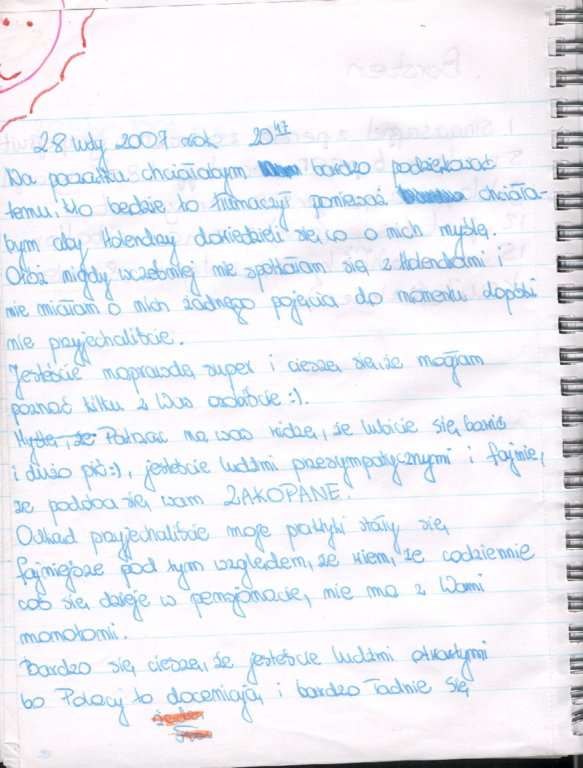 28 luty 2007 rok 20 47
Na początku chciałabym bardzo podziękować
temu, kto będzie to tłumaczył ponieważ chciała-
bym aby Holendrzy dowiedzieli się co o nich myślę.
Otóż nigdy wcześniej nie spotkałam się z Holendrami i
nie miałam o nich żadnego pojęcia do momentu dopóki
nie przyjechaliście.
Jesteście naprawdę super i cieszę się, że mogłam
poznać kilku z Was osobiście :).
Myślę, że Patrząc na was widzę, że lubicie się bawić
i dużo pić :), jesteście ludźmi przesympatycznymi i fajnie,
że podoba się wam ZAKOPANE.
Odkąd przyjechaliście moje praktyki stały się
fajniejsze pod tym względem, że wiem, że codziennie
coś się dzieje w pensjonacie, nie ma z Wami
monotonii.
Bardzo się cieszę, że jesteście ludźmi otwartymi
bo Polacy to doceniają i bardzo ładnie się